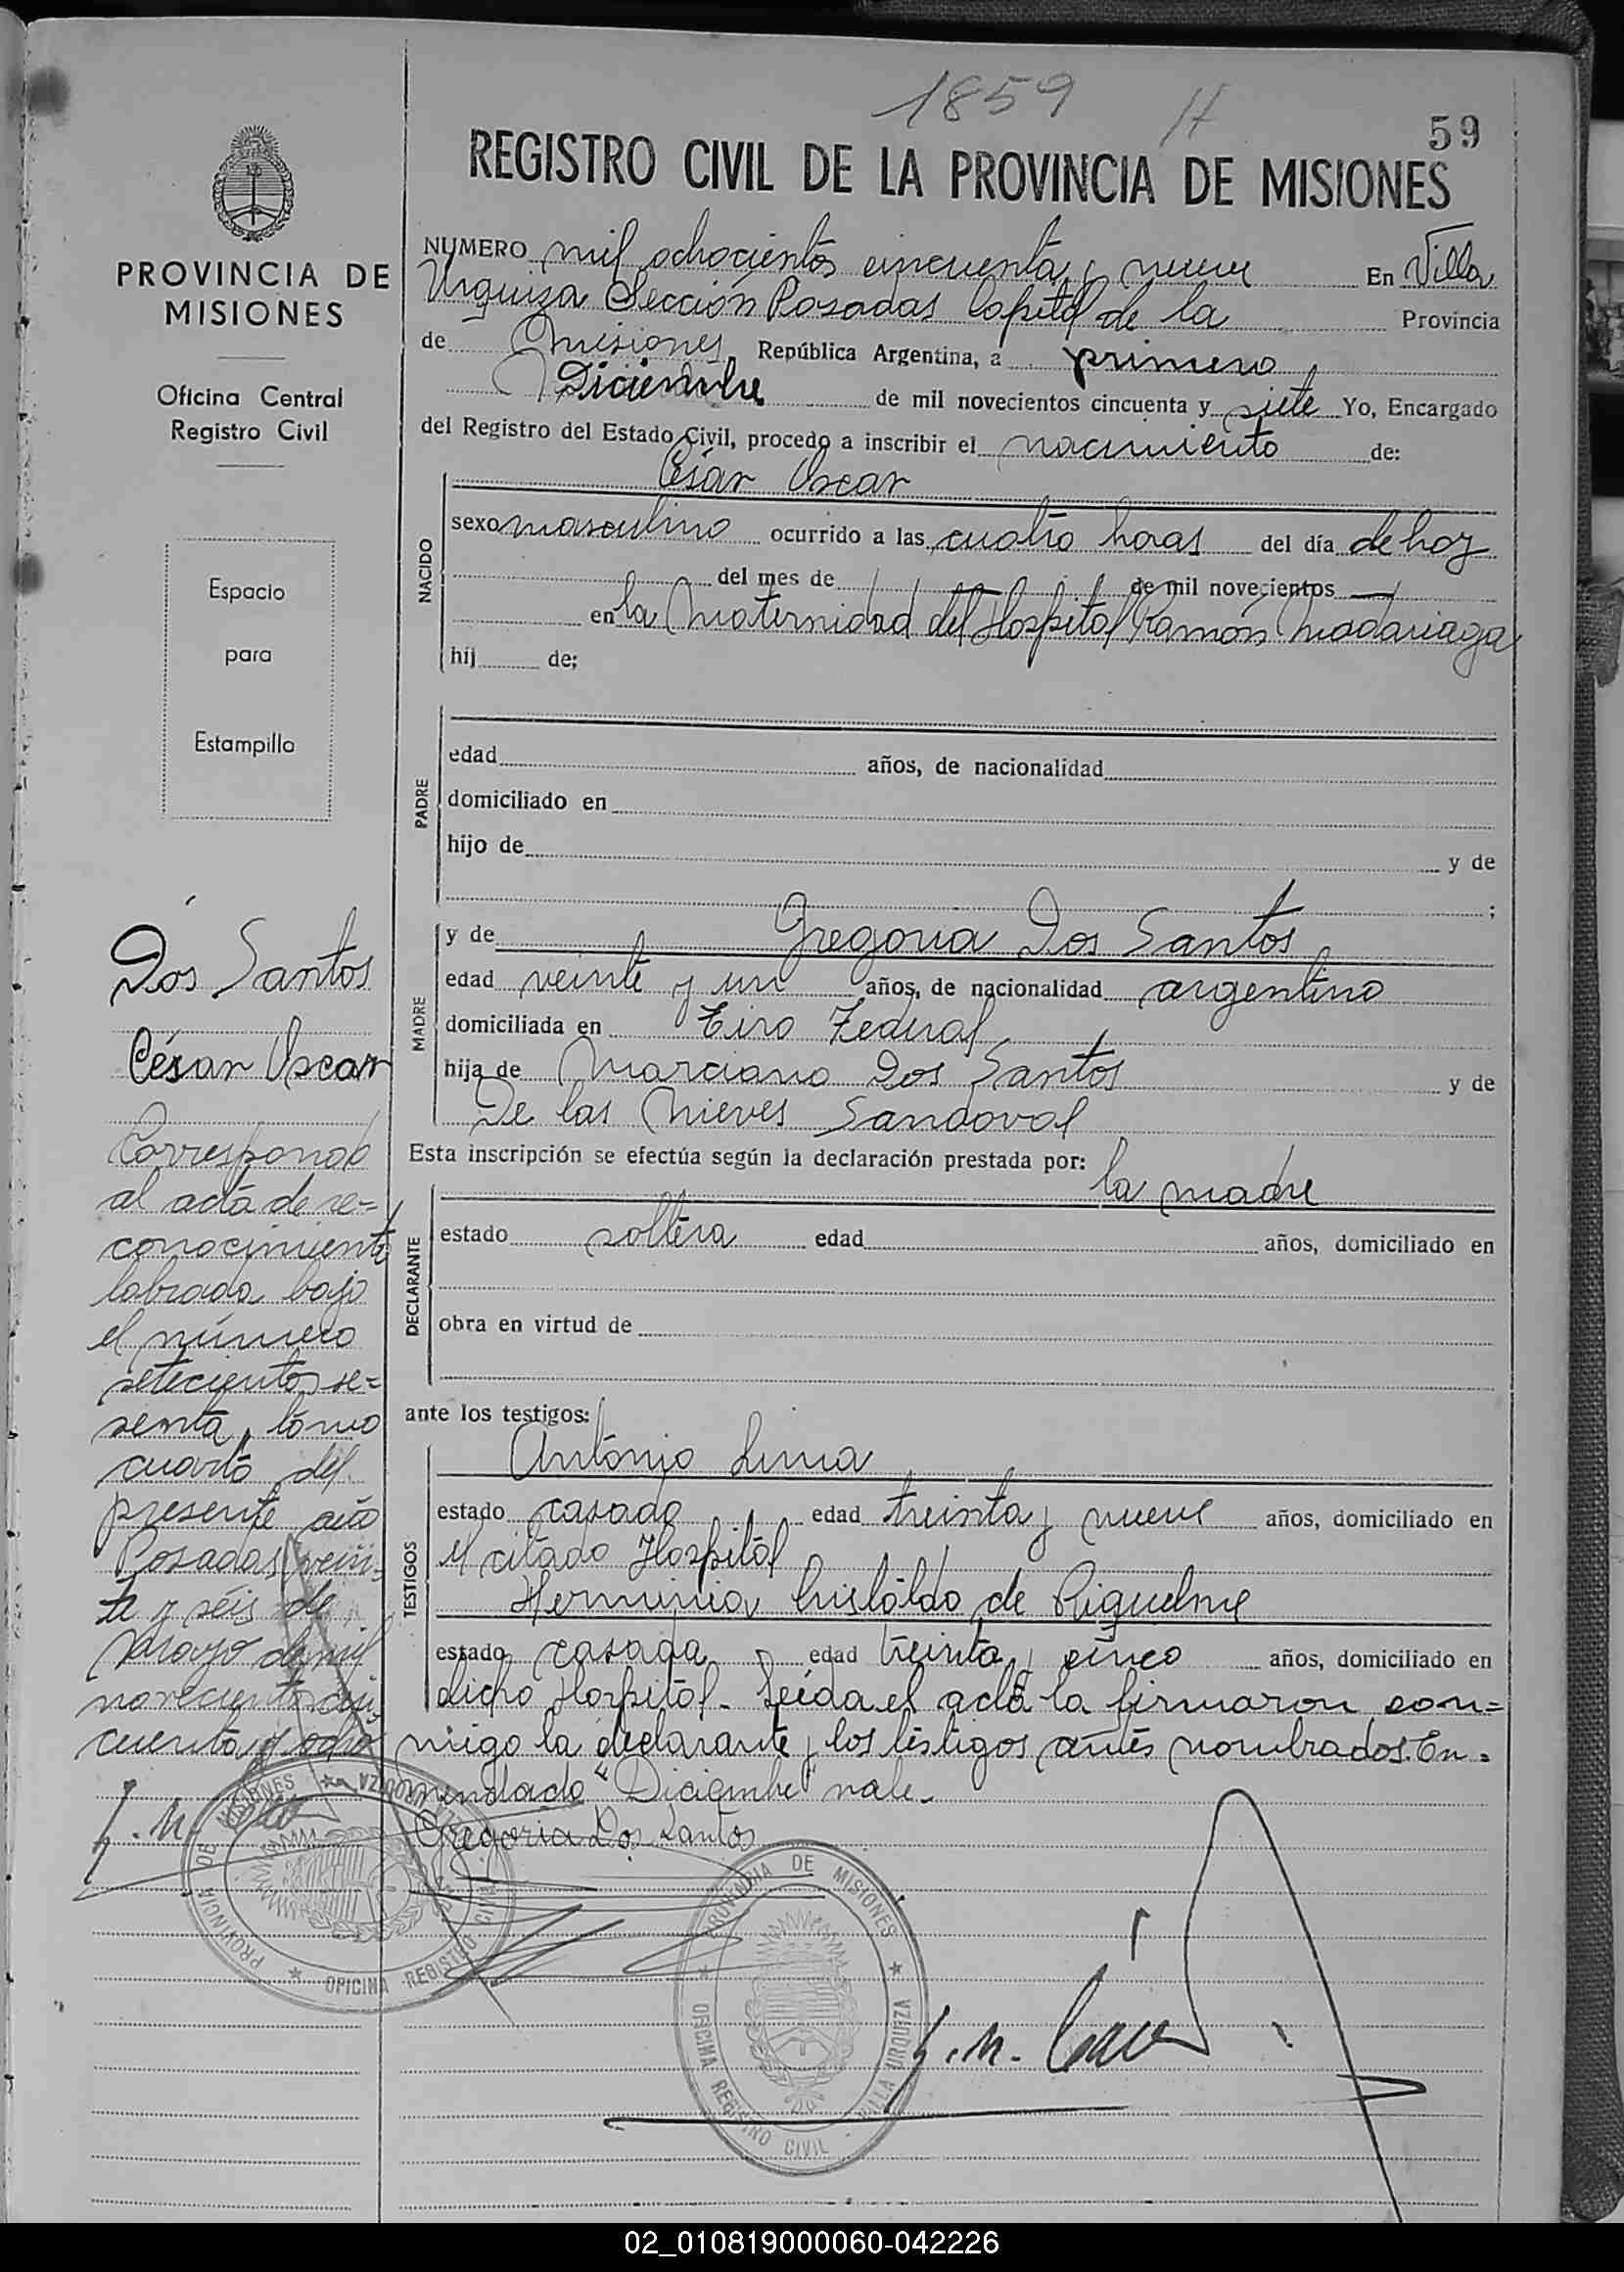 1859 H
59
REGISTRO CIVIL DE LA PROVINCIA DE MISIONES
PROVINCIA DE
MISIONES
Oficina Central
Registro Civil
Espacio
para
Estampilla
NUMERO mil ochocientos cincuenta y nueve En Villa
Urquiza Sección Posadas Capital de la Provincia
de Misiones República Argentina, a primero
Diciembre de mil novecientos cincuenta y siete Yo, Encargado
del Registro del Estado Civil, procedo a inscribir el nacimiento de:
César Oscar
NACIDO
sexo masculino ocurrido a las cuatro horas del día de hoy
del mes de de mil novecientos
en la Maternidad del Hospital Ramón Madariaga
hij de;
PADRE
edad años, de nacionalidad
domiciliado en
hijo de y de
;
MADRE
y de Gregoria Dos Santos
edad veinte y un años, de nacionalidad argentino
domiciliada en Tiro Federal
hija de Marciano Dos Santos y de
De las Nieves Sandoval
Esta inscripción se efectúa según la declaración prestada por:
la madre
DECLARANTE
estado soltera edad años, domiciliado en
obra en virtud de
ante los testigos:
TESTIGOS
Antonio Lima
estado casado edad treinta y nueve años, domiciliado en
el citado Hospital
Herminia Cristaldo de Riquelme
estado casada edad treinta y cinco años, domiciliado en
dicho Hospital - Leída el acta la firmaron con=
migo la declarante y los testigos antes nombrados. En=
mendado "Diciembre" vale.
Gregoria Dos Santos
Dos Santos
César Oscar
Corresponde
al acta de re=
conocimiento
labrada bajo
el número
setecientos se=
senta, tomo
cuarto del
presente año
Posadas, vein-
te y séis de
Mayo de mil
novecientos cin-
cuenta y ocho
PROVINCIA DE MISIONES
VILLA URQUIZA
OFICINA REGISTRO CIVIL
PROVINCIA DE MISIONES
OFICINA REGISTRO CIVIL - VILLA URQUIZA
02_010819000060-042226